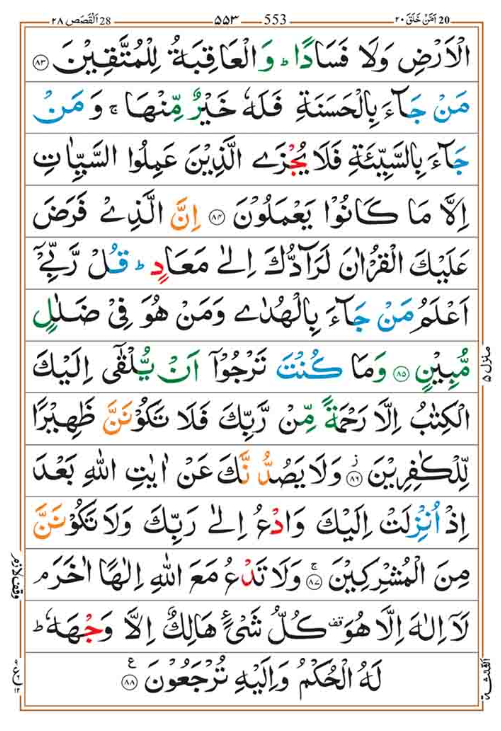 اَمَّنْ خَلَقَ ٢٠ 20 ۵۵۳ 553 اَلْقَصَص ٢٨ 28
الْاَرْضِ وَلَا فَسَادًا ؕ وَالْعَاقِبَةُ لِلْمُتَّقِيْنَ ﴿۸۳﴾
مَنْ جَآءَ بِالْحَسَنَةِ فَلَهٗ خَيْرٌ مِّنْهَا ۚ وَ مَنْ
جَآءَ بِالسَّيِّئَةِ فَلَا يُجْزَى الَّذِيْنَ عَمِلُوا السَّيِّاٰتِ
اِلَّا مَا كَانُوْا يَعْمَلُوْنَ ﴿۸۴﴾ اِنَّ الَّذِىْ فَرَضَ
عَلَيْكَ الْقُرْاٰنَ لَرَآدُّكَ اِلٰى مَعَادٍ ؕ قُلْ رَّبِّىْۤ
اَعْلَمُ مَنْ جَآءَ بِالْهُدٰى وَمَنْ هُوَ فِىْ ضَلٰلٍ
مُّبِيْنٍ ﴿۸۵﴾ وَمَا كُنْتَ تَرْجُوْۤا اَنْ يُّلْقٰٓى اِلَيْكَ
الْكِتٰبُ اِلَّا رَحْمَةً مِّنْ رَّبِّكَ فَلَا تَكُوْنَنَّ ظَهِيْرًا
لِّلْكٰفِرِيْنَ ﴿۸۶﴾ وَلَا يَصُدُّنَّكَ عَنْ اٰيٰتِ اللّٰهِ بَعْدَ
اِذْ اُنْزِلَتْ اِلَيْكَ وَادْعُ اِلٰى رَبِّكَ وَلَا تَكُوْنَنَّ
مِنَ الْمُشْرِكِيْنَ ﴿۸۷﴾ وَلَا تَدْعُ مَعَ اللّٰهِ اِلٰهًا اٰخَرَ ۘ
لَاۤ اِلٰهَ اِلَّا هُوَ كُلُّ شَىْءٍ هَالِكٌ اِلَّا وَجْهَهٗ ؕ
لَهُ الْحُكْمُ وَاِلَيْهِ تُرْجَعُوْنَ ﴿۸۸﴾
منزل ۵